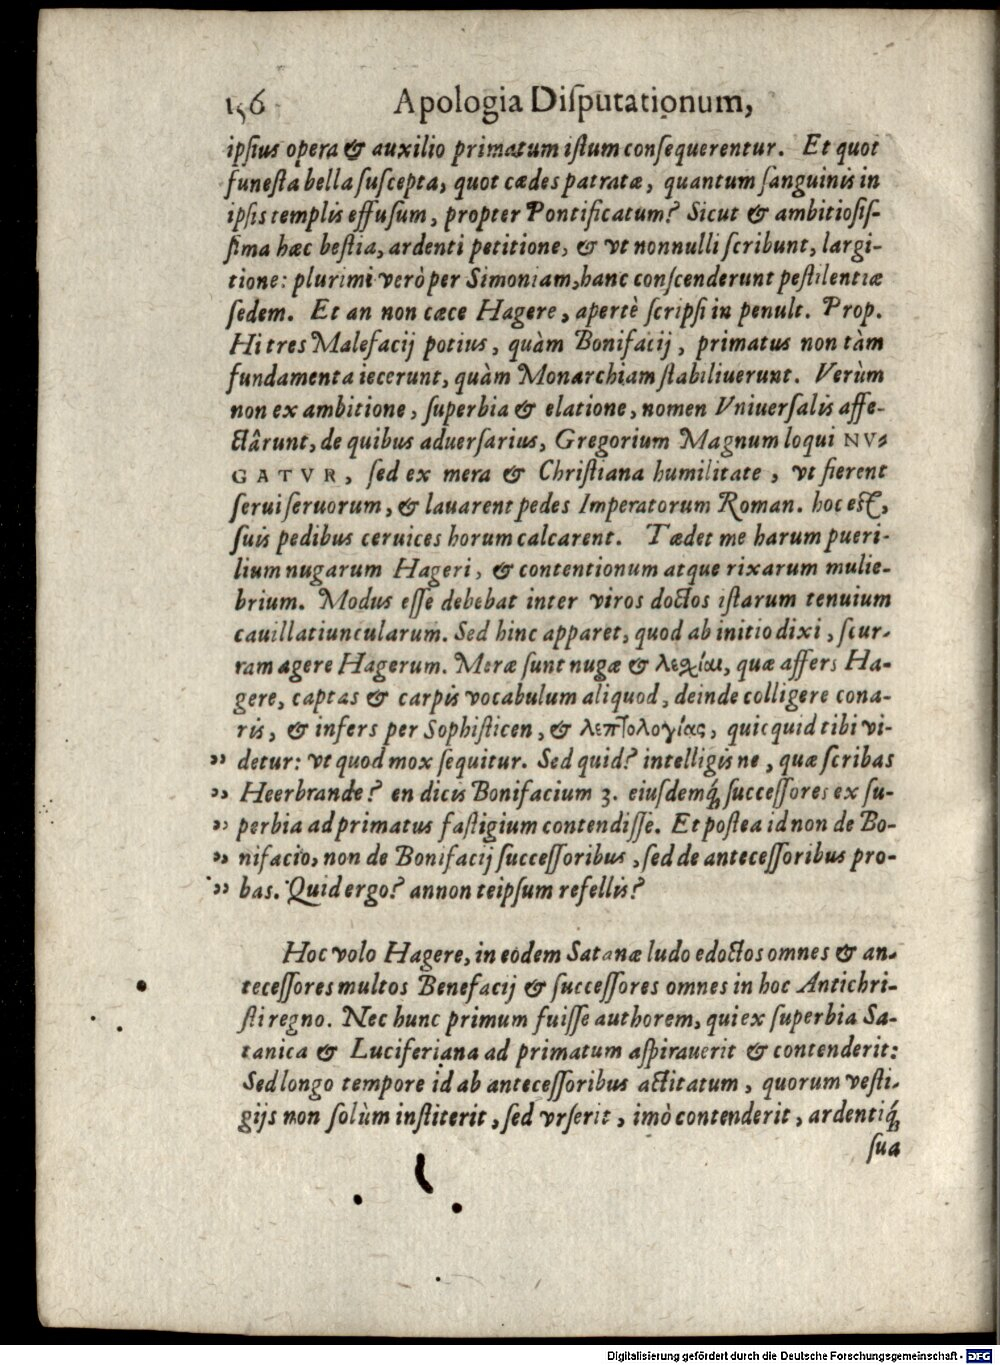 156 Apologia Diſputationum,
ipſius opera & auxilio primatum iſtum conſequerentur. Et quot
funeſta bella ſuſcepta, quot cædes patratæ, quantum ſanguinis in
ipſis templis effuſum, propter Pontificatum? Sicut & ambitioſiſ-
ſima hæc beſtia, ardenti petitione, & vt nonnulli ſcribunt, largi-
tione: plurimi verò per Simoniam, hanc conſcenderunt peſtilentiæ
ſedem. Et an non cæce Hagere, apertè ſcripſi in penult. Prop.
Hi tres Malefacij potius, quàm Bonifacij, primatus non tàm
fundamenta iecerunt, quàm Monarchiam ſtabiliuerunt. Verùm
non ex ambitione, ſuperbia & elatione, nomen Vniuerſalis affe-
ctârunt, de quibus aduerſarius, Gregorium Magnum loqui NV-
GATVR, ſed ex mera & Chriſtiana humilitate, vt fierent
ſerui ſeruorum, & lauarent pedes Imperatorum Roman. hoc eſt,
ſuis pedibus ceruices horum calcarent. Tædet me harum pueri-
lium nugarum Hageri, & contentionum atque rixarum mulie-
brium. Modus eſſe debebat inter viros doctos iſtarum tenuium
cauillatiuncularum. Sed hinc apparet, quod ab initio dixi, ſcur-
ram agere Hagerum. Meræ ſunt nugæ & λεχίαι, quæ affers Ha-
gere, captas & carpis vocabulum aliquod, deinde colligere cona-
ris, & infers per Sophiſticen, & λεπτολογίας, quicquid tibi vi-
" detur: vt quod mox ſequitur. Sed quid? intelligis ne, quæ ſcribas
" Heerbrande? en dicis Bonifacium 3. eiuſdemq́; ſucceſſores ex ſu-
" perbia ad primatus faſtigium contendiſſe. Et poſtea id non de Bo-
" nifacio, non de Bonifacij ſucceſſoribus, ſed de anteceſſoribus pro-
" bas. Quid ergo? annon teipſum refellis?
Hoc volo Hagere, in eodem Satanæ ludo edoctos omnes & an-
teceſſores multos Benefacij & ſucceſſores omnes in hoc Antichri-
ſti regno. Nec hunc primum fuiſſe authorem, qui ex ſuperbia Sa-
tanica & Luciferiana ad primatum aſpirauerit & contenderit:
Sed longo tempore id ab anteceſſoribus actitatum, quorum veſti-
gijs non ſolùm inſtiterit, ſed vrſerit, imò contenderit, ardentiq́;
ſua
Digitalisierung gefördert durch die Deutsche Forschungsgemeinschaft - DFG